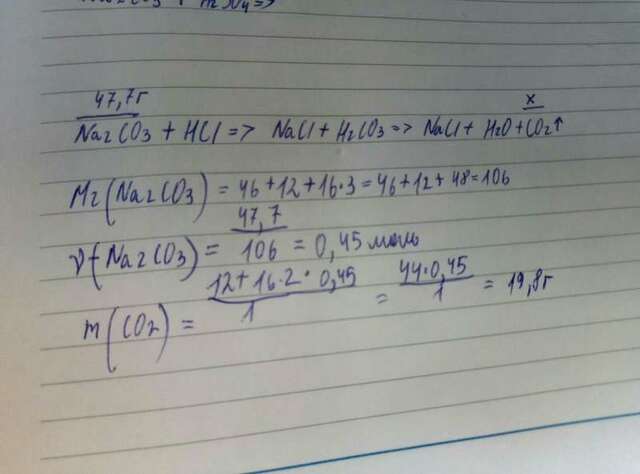 47,7г
x
Na2CO3 + HCl => NaCl + H2CO3 => NaCl + H2O + CO2↑
Mr(Na2CO3) = 46+12+16·3=46+12+48=106
ν(Na2CO3) = 47,7 / 106 = 0,45 моль
m(CO2) = 12+16·2·0,45 / 1 = 44·0,45 / 1 = 19,8г